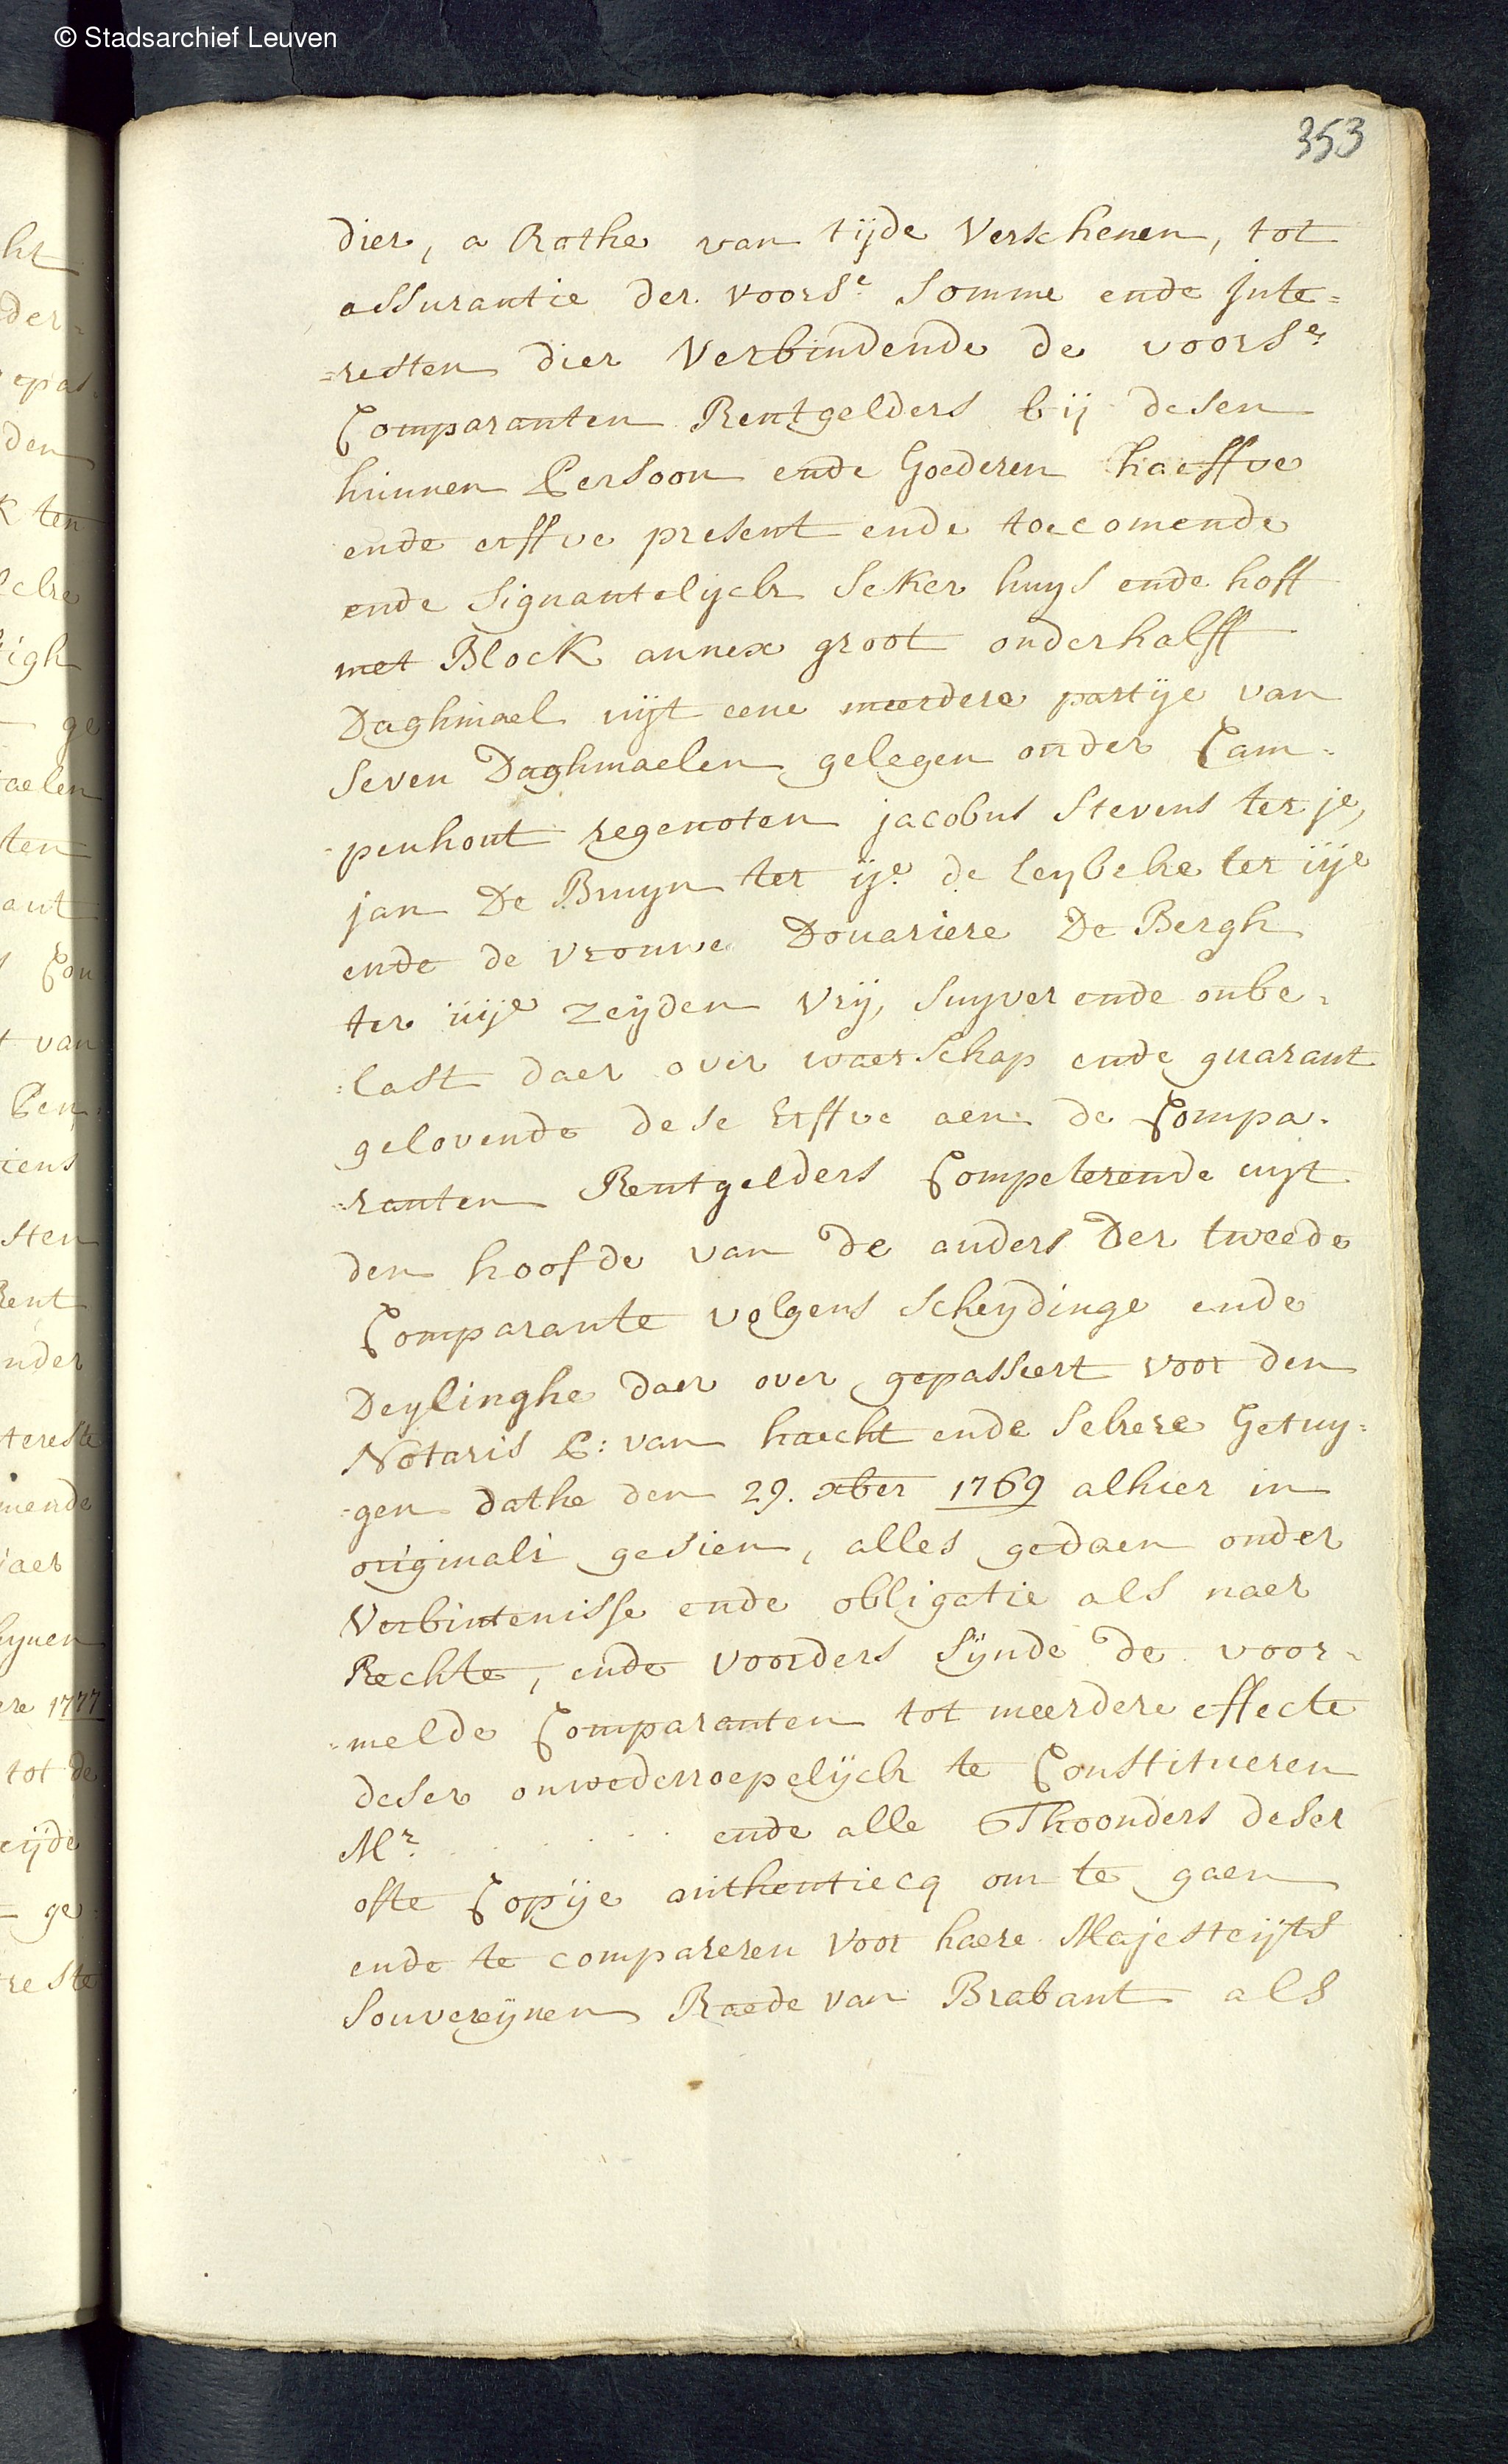 © Stadsarchief Leuven
353
dier, a Rathe van tijde Verschenen, tot
assurantie der voorse. Somme ende Jnte=
=resten dier Verbindende de voorse.
Comparanten Rentgelders bij desen
hunnen Persoon ende Goederen haeffve
ende erffve present ende toecomende
ende Signantelijck Seker huys ende hoff
met Block annex groot onderhalff
Daghmael uijt eene meerdere partije van
Seven Daghmaelen gelegen onder Cam=
-penhout regenoten jacobus Stevens ter je,
jan De Bruyn ter ije. de Leybeke ter iije
ende de vrouwe Douariere De Bergh
ter iiije zeijden vrij, Suyver ende onbe=
=last daer over waerschap ende guarant
gelovende dese Erffve aen de Compa=
=ranten Rentgelders Competerende uijt
den hoofde van de auders Der tweede
Comparante volgens Scheydinge ende
Deylinghe daer over gepasseert voor den
Notaris P: van haecht ende Sekere Getuy=
=gen dathe den 29. xber 1769 alhier in
originali gesien, alles gedaen onder
Verbintenisse ende obligatie als naer
Rechte, ende voorders Sijnde de voor=
=melde Comparanten tot meerdere effecte
deser onwederroepelijck te Constitueren
Mr. . . . . . . ende alle Thoonders deser
ofte Copije authentiecq om te gaen
ende te compareren voor haere Majesteijts
Souvereijnen Raede van Brabant als